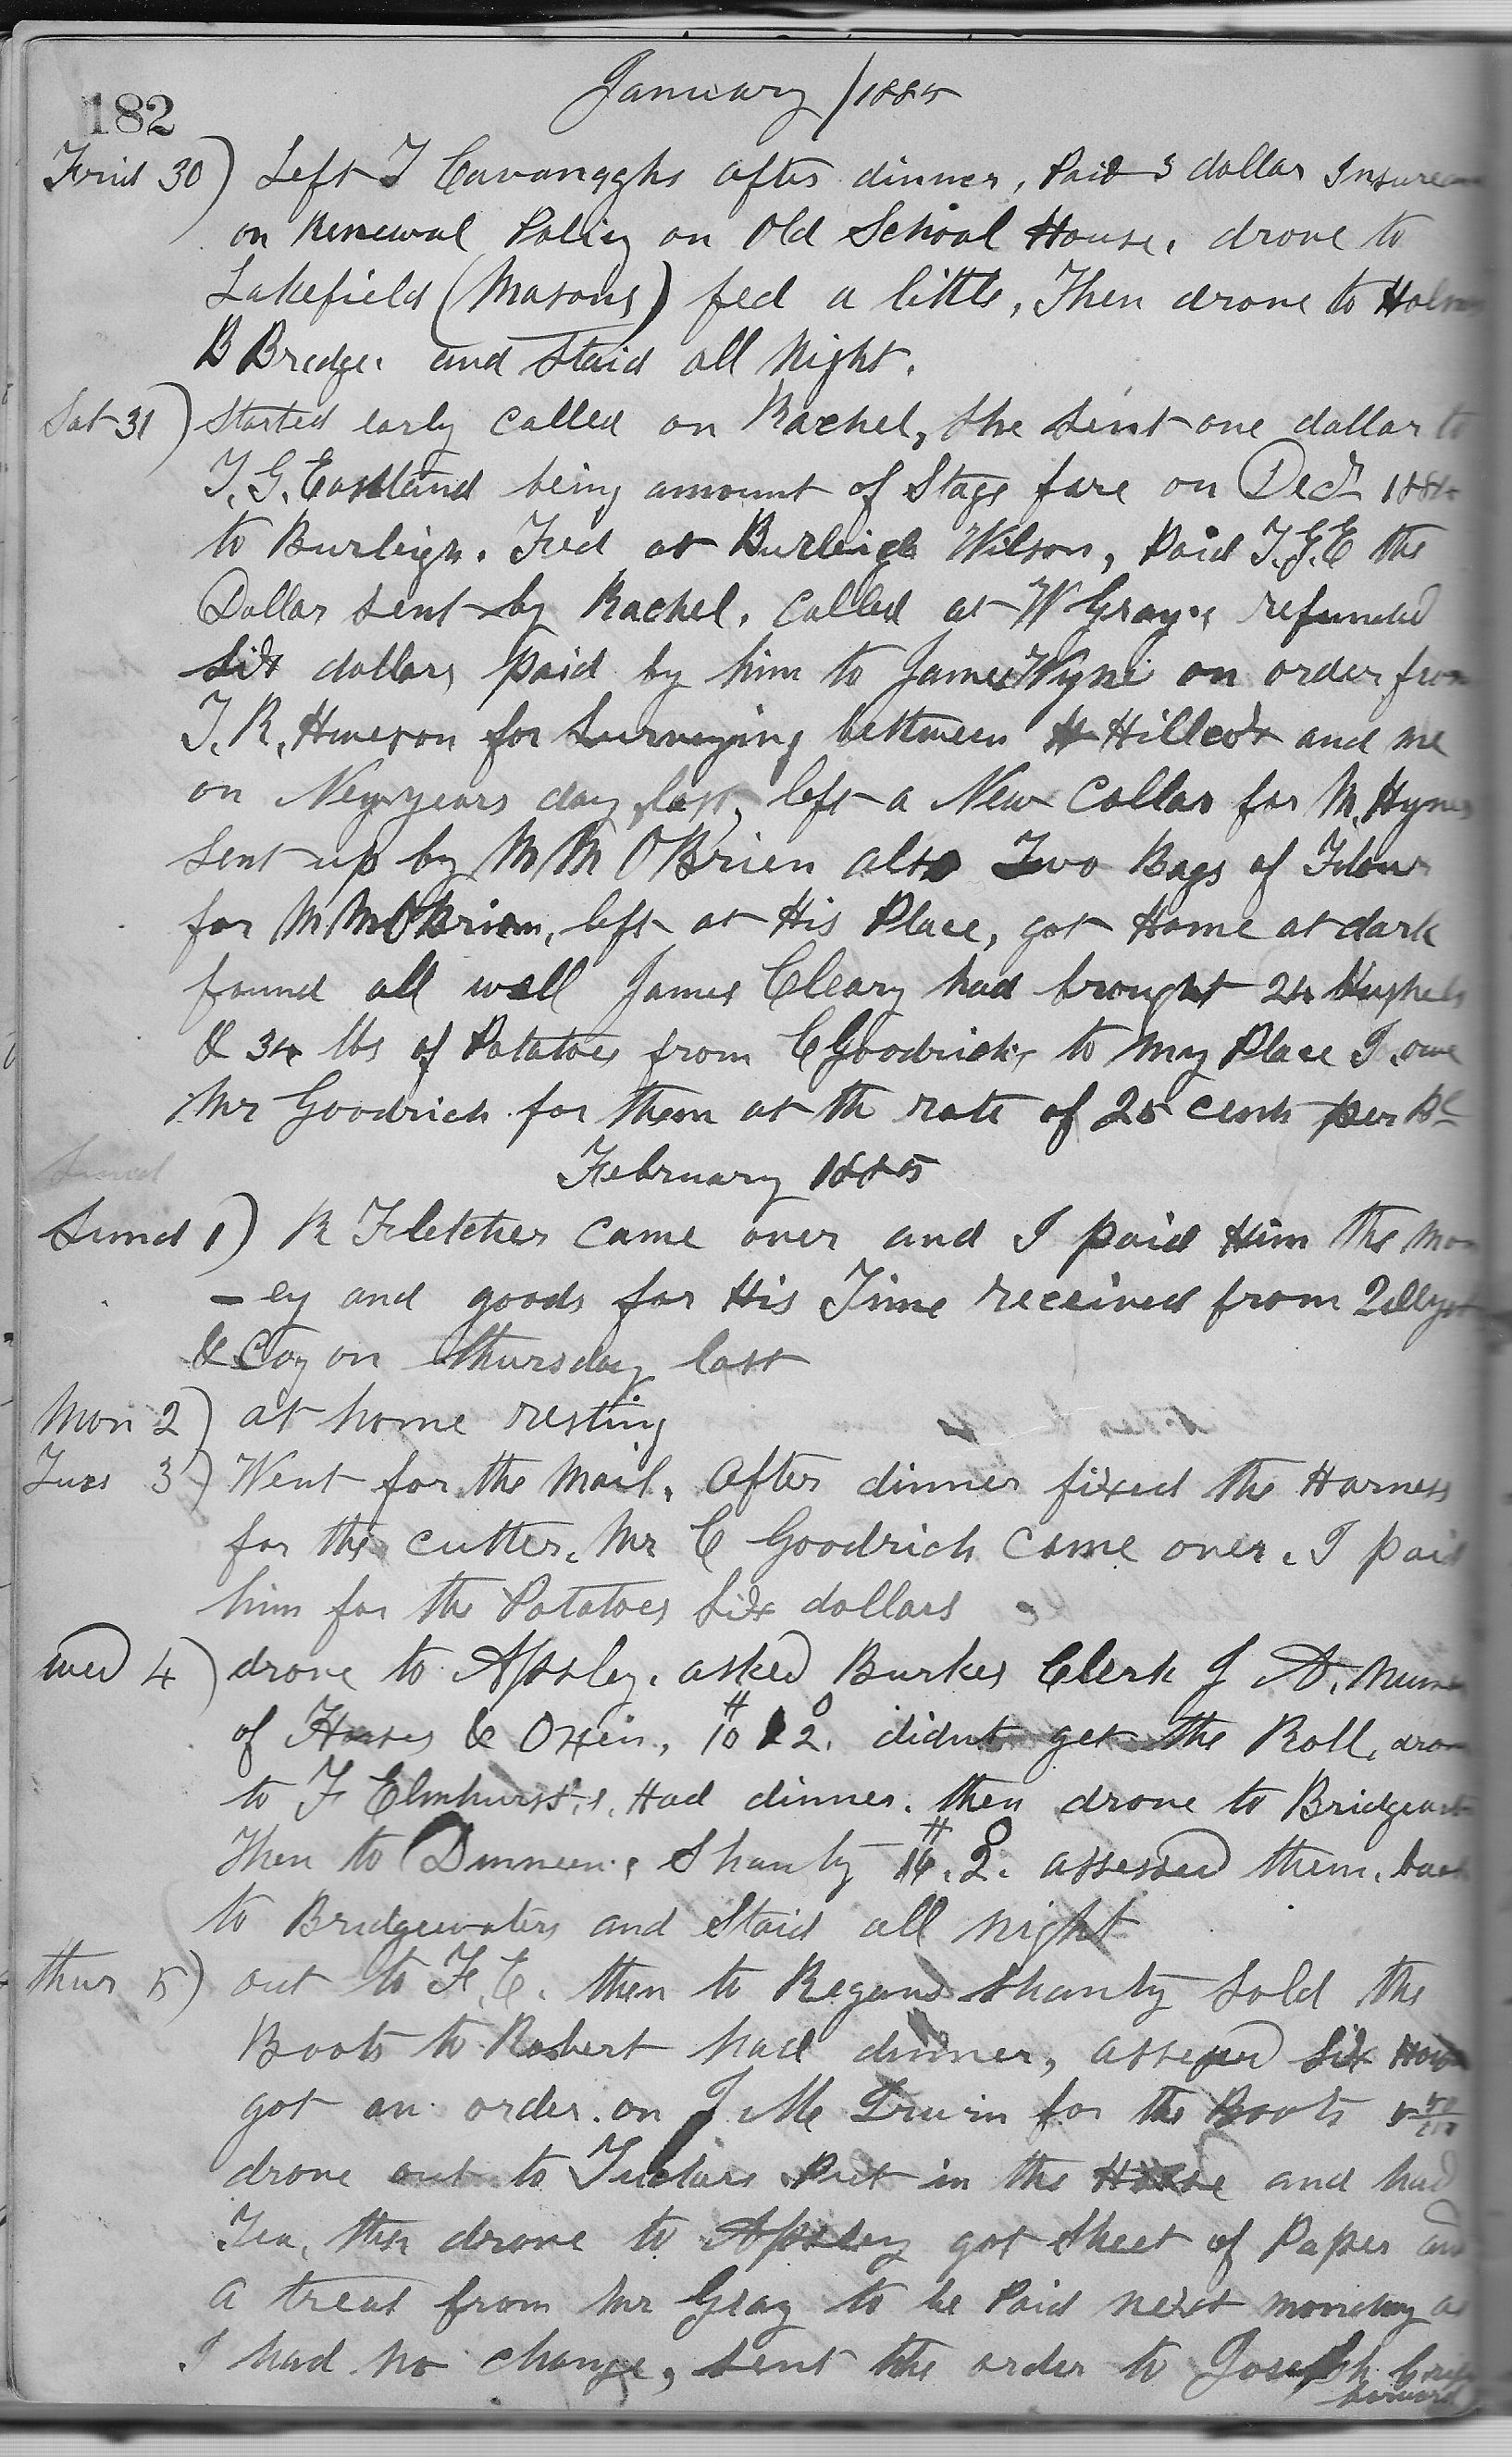 182
January / 1885
Frid 30) Left T Cavanaghs after dinner, Paid 3 dollar
on Renewal Policy on Old School House. drove to
Lakefield (Masons) fed a little, Then drove to
B Bredge. and Staid all Night.
Sat 31) Started early called on Rachel, She sent one dollar to
T. G. Eastland being amount of Stage fare on Decr
to Burleigh. Fed at Burleigh Wilson, Paid T.G.E the
Dollar sent by Rachel. Called at W Gray's refunded
six dollars paid by him to James on order from
T. R. for Surveying between and me
on Newyears day last, left a New Collar for M. Hynes
sent up by M M OBrien also Two Bags of Flour
for M M OBrien, left at His Place, got Home at dark
found all well James Cleary had brought 24 Bushels
& 34 lbs of Potatoes from C Goodrichs to my Place I owe
Mr Goodrich for them at th rate of 25 cents per Bl
Sund
February 1885
Sund 1) R Fletcher Came over and I paid Him the Mon
-ey and goods for His Time received from
& Coy on thursday last
Mon 2) at home resting
Tues 3) Went for the Mail. After dinner fixed the Harness
for the cutter. Mr C Goodrich Came over. I paid
him for the Potatoes Six dollars
Wed 4) drove to Apsley. asked Burkes Clerk
of Horses & Oxen, H 10 & O 2. didnt get the Roll, drove
to F Elmhursts. Had dinner. then drove to
Then to Dunneens Shanty H 16. O 2. assessed them. back
to Bridgewaters and Staid all night
Thur 5) out to F. E. then to Regans Shanty Sold the
Boots to Robert had dinner, assessed Six
got an order on J Mc Irwin for the Boots
drove out to Put in the Horse and had
Tea, then drove to Apsley got Sheet of Paper and
a treat from Mr Gray to be Paid next monday as
I had no change, sent the order to Joseph
forward